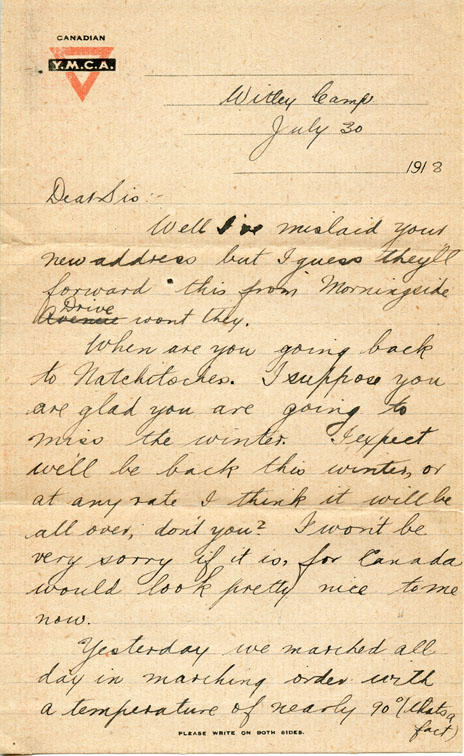 CANADIAN
Y.M.C.A.
Witley Camp
July 30
1918
Dear Sis :-
Well I've mislaid your
new address but I guess they'll
forward this from Morningside
Drive
Avenue wont they.
When are you going back
to Natchitoches. I suppose you
are glad you are going to
miss the winter. I expect
we'll be back this winter, or
at any rate I think it will be
all over, don't you? I won't be
very sorry if it is, for Canada
would look pretty nice to me
now.
Yesterday we marched all
day in marching order with
a temperature of nearly 90° (thats a
fact)
PLEASE WRITE ON BOTH SIDES.